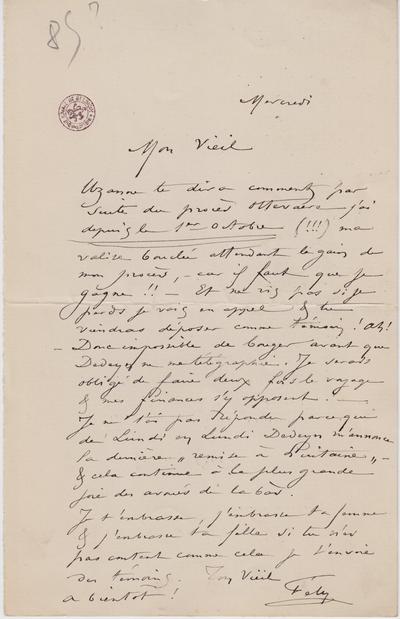 85?
Mercredi
Mon Vieil
Uzanne te dira comment, par
suite du procès j'ai
depuis le 1er Octobre (!!!) ma
valise bouclée attendant le gain de
mon procès, - car il faut que je
gagne !! - Et ne ris pas si je
perds je vais en appel & tu
viendras déposer comme témoin ! Ah !
- Donc impossible de bouger avant que
Dedeyn ne me télégraphie. Je serais
obligé de faire deux fois le voyage
& mes finances s'y opposent. -
Je ne t'ai pas répondu parce qui
de Lundi en Lundi Dedeyn m'annonce
la dernière „ remise à quinzaine „ -
& cela continue à la plus grande
joie des avoués de là bas.
Je t'embrasse, j'embrasse ta femme
& j'embrasse ta fille si tu n'es
pas content comme cela je t'envoie
des témoins. Ton Vieil
a bientôt ! Fély